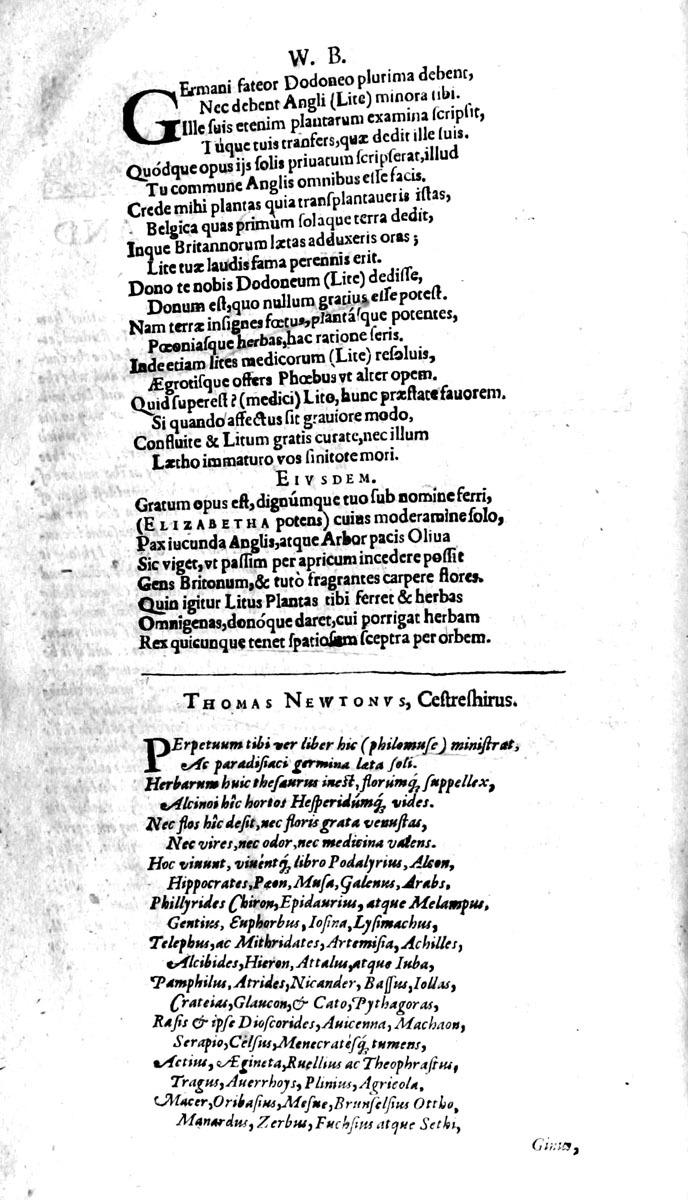 W. B.
GErmani fateor Dodoneo plurima debent,
Nec debent Angli (Lite) minora tibi.
Ille suis etenim plantarum examina scripsit,
Túque tuis transfers, quæ dedit ille suis.
Quódque opus ijs solis priuatum scripserat, illud
Tu commune Anglis omnibus esse facis.
Crede mihi plantas quia transplantaueris istas,
Belgica quas primùm solaque terra dedit,
Inque Britannorum lætas adduxeris oras;
Lite tuæ laudis fama perennis erit.
Dono te nobis Dodoneum (Lite) dedisse,
Donum est, quo nullum gratius esse potest.
Nam terræ insignes fœtus, plantásque potentes,
Pœoniasque herbas, hac ratione seris.
Inde etiam lites medicorum (Lite) resoluis,
Ægrotisque offers Phœbus vt alter opem.
Quid superest? (medici) Lito, hunc præstate fauorem.
Si quando affectus sit grauiore modo,
Confluite & Litum gratis curate, nec illum
Lætho immaturo vos sinitote mori.
EIVSDEM.
Gratum opus est, dignúmque tuo sub nomine ferri,
(ELIZABETHA potens) cuius moderamine solo,
Pax iucunda Anglis, atque Arbor pacis Oliua
Sic viget, vt passim per apricum incedere possit
Gens Britonum, & tutò fragrantes carpere flores.
Quin igitur Litus Plantas tibi ferret & herbas
Omnigenas, donóque daret, cui porrigat herbam
Rex quicunque tenet spatiosam sceptra per orbem.
THOMAS NEWTONVS, Cestreshirus.
PErpetuum tibi ver liber hic (philomuse) ministrat,
Ac paradisiaci germina læta soli.
Herbarum huic thesaurus inest, florumq́; suppellex,
Alcinoi hîc hortos Hesperidúmq́; vides.
Nec flos hîc desit, nec floris grata venustas,
Nec vires, nec odor, nec medicina valens.
Hoc viuunt, viuentq́; libro Podalyrius, Alcon,
Hippocrates, Pæon, Musa, Galenus, Arabs,
Phillyrides Chiron, Epidaurius, atque Melampus,
Gentius, Euphorbus, Iosina, Lysimachus,
Telephus, ac Mithridates, Artemisia, Achilles,
Alcibides, Hieron, Attalus, atque Iuba,
Pamphilus, Atrides, Nicander, Bassus, Iollas,
Crateias, Glaucon, & Cato, Pythagoras,
Rasis & ipse Dioscorides, Auicenna, Machaon,
Serapio, Celsus, Menecratésq́; tumens,
Actius, Ægineta, Ruellius ac Theophrastus,
Tragus, Auerrhoys, Plinius, Agricola,
Macer, Oribasius, Mesue, Brunselsius Ottho,
Manardus, Zerbus, Fuchsius atque Sethi,